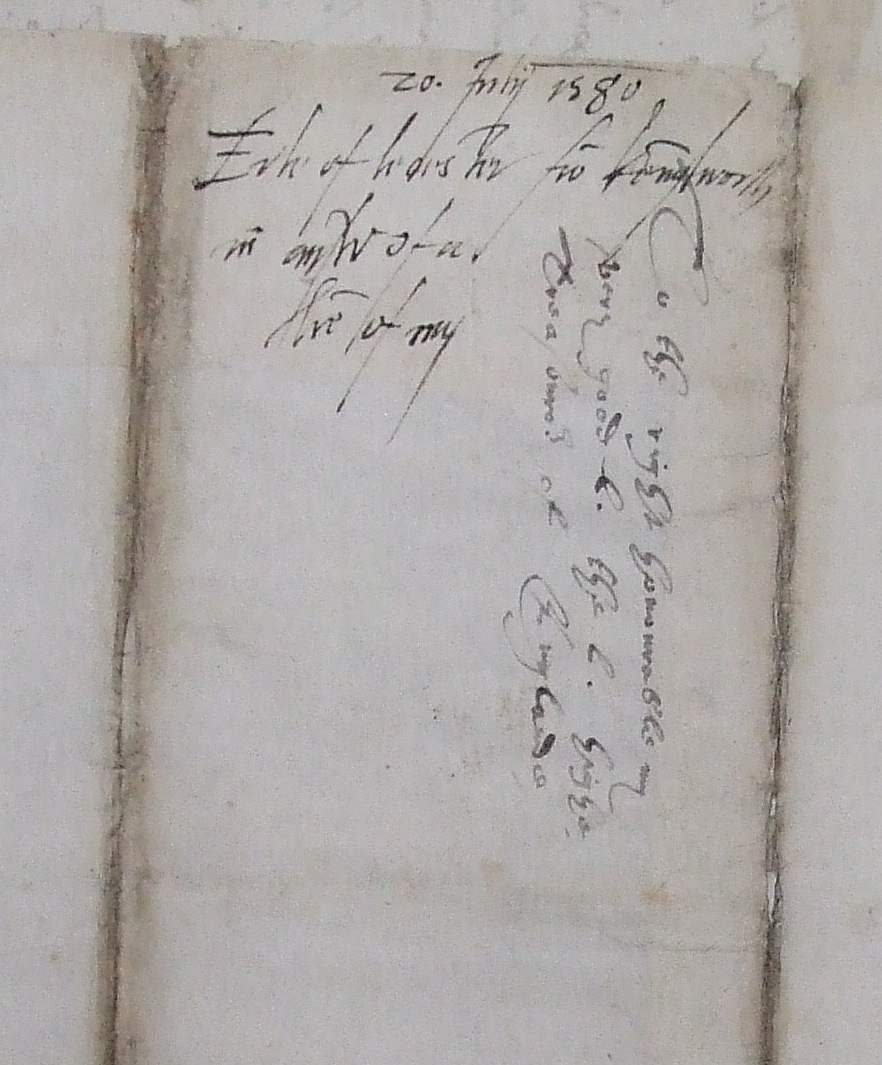 20. July 1580
Erle of Lecester frō Kenyworth
in answer of a
lrē of my
To the right honourable my
very good L. the L. highe
Treasouror of Englande